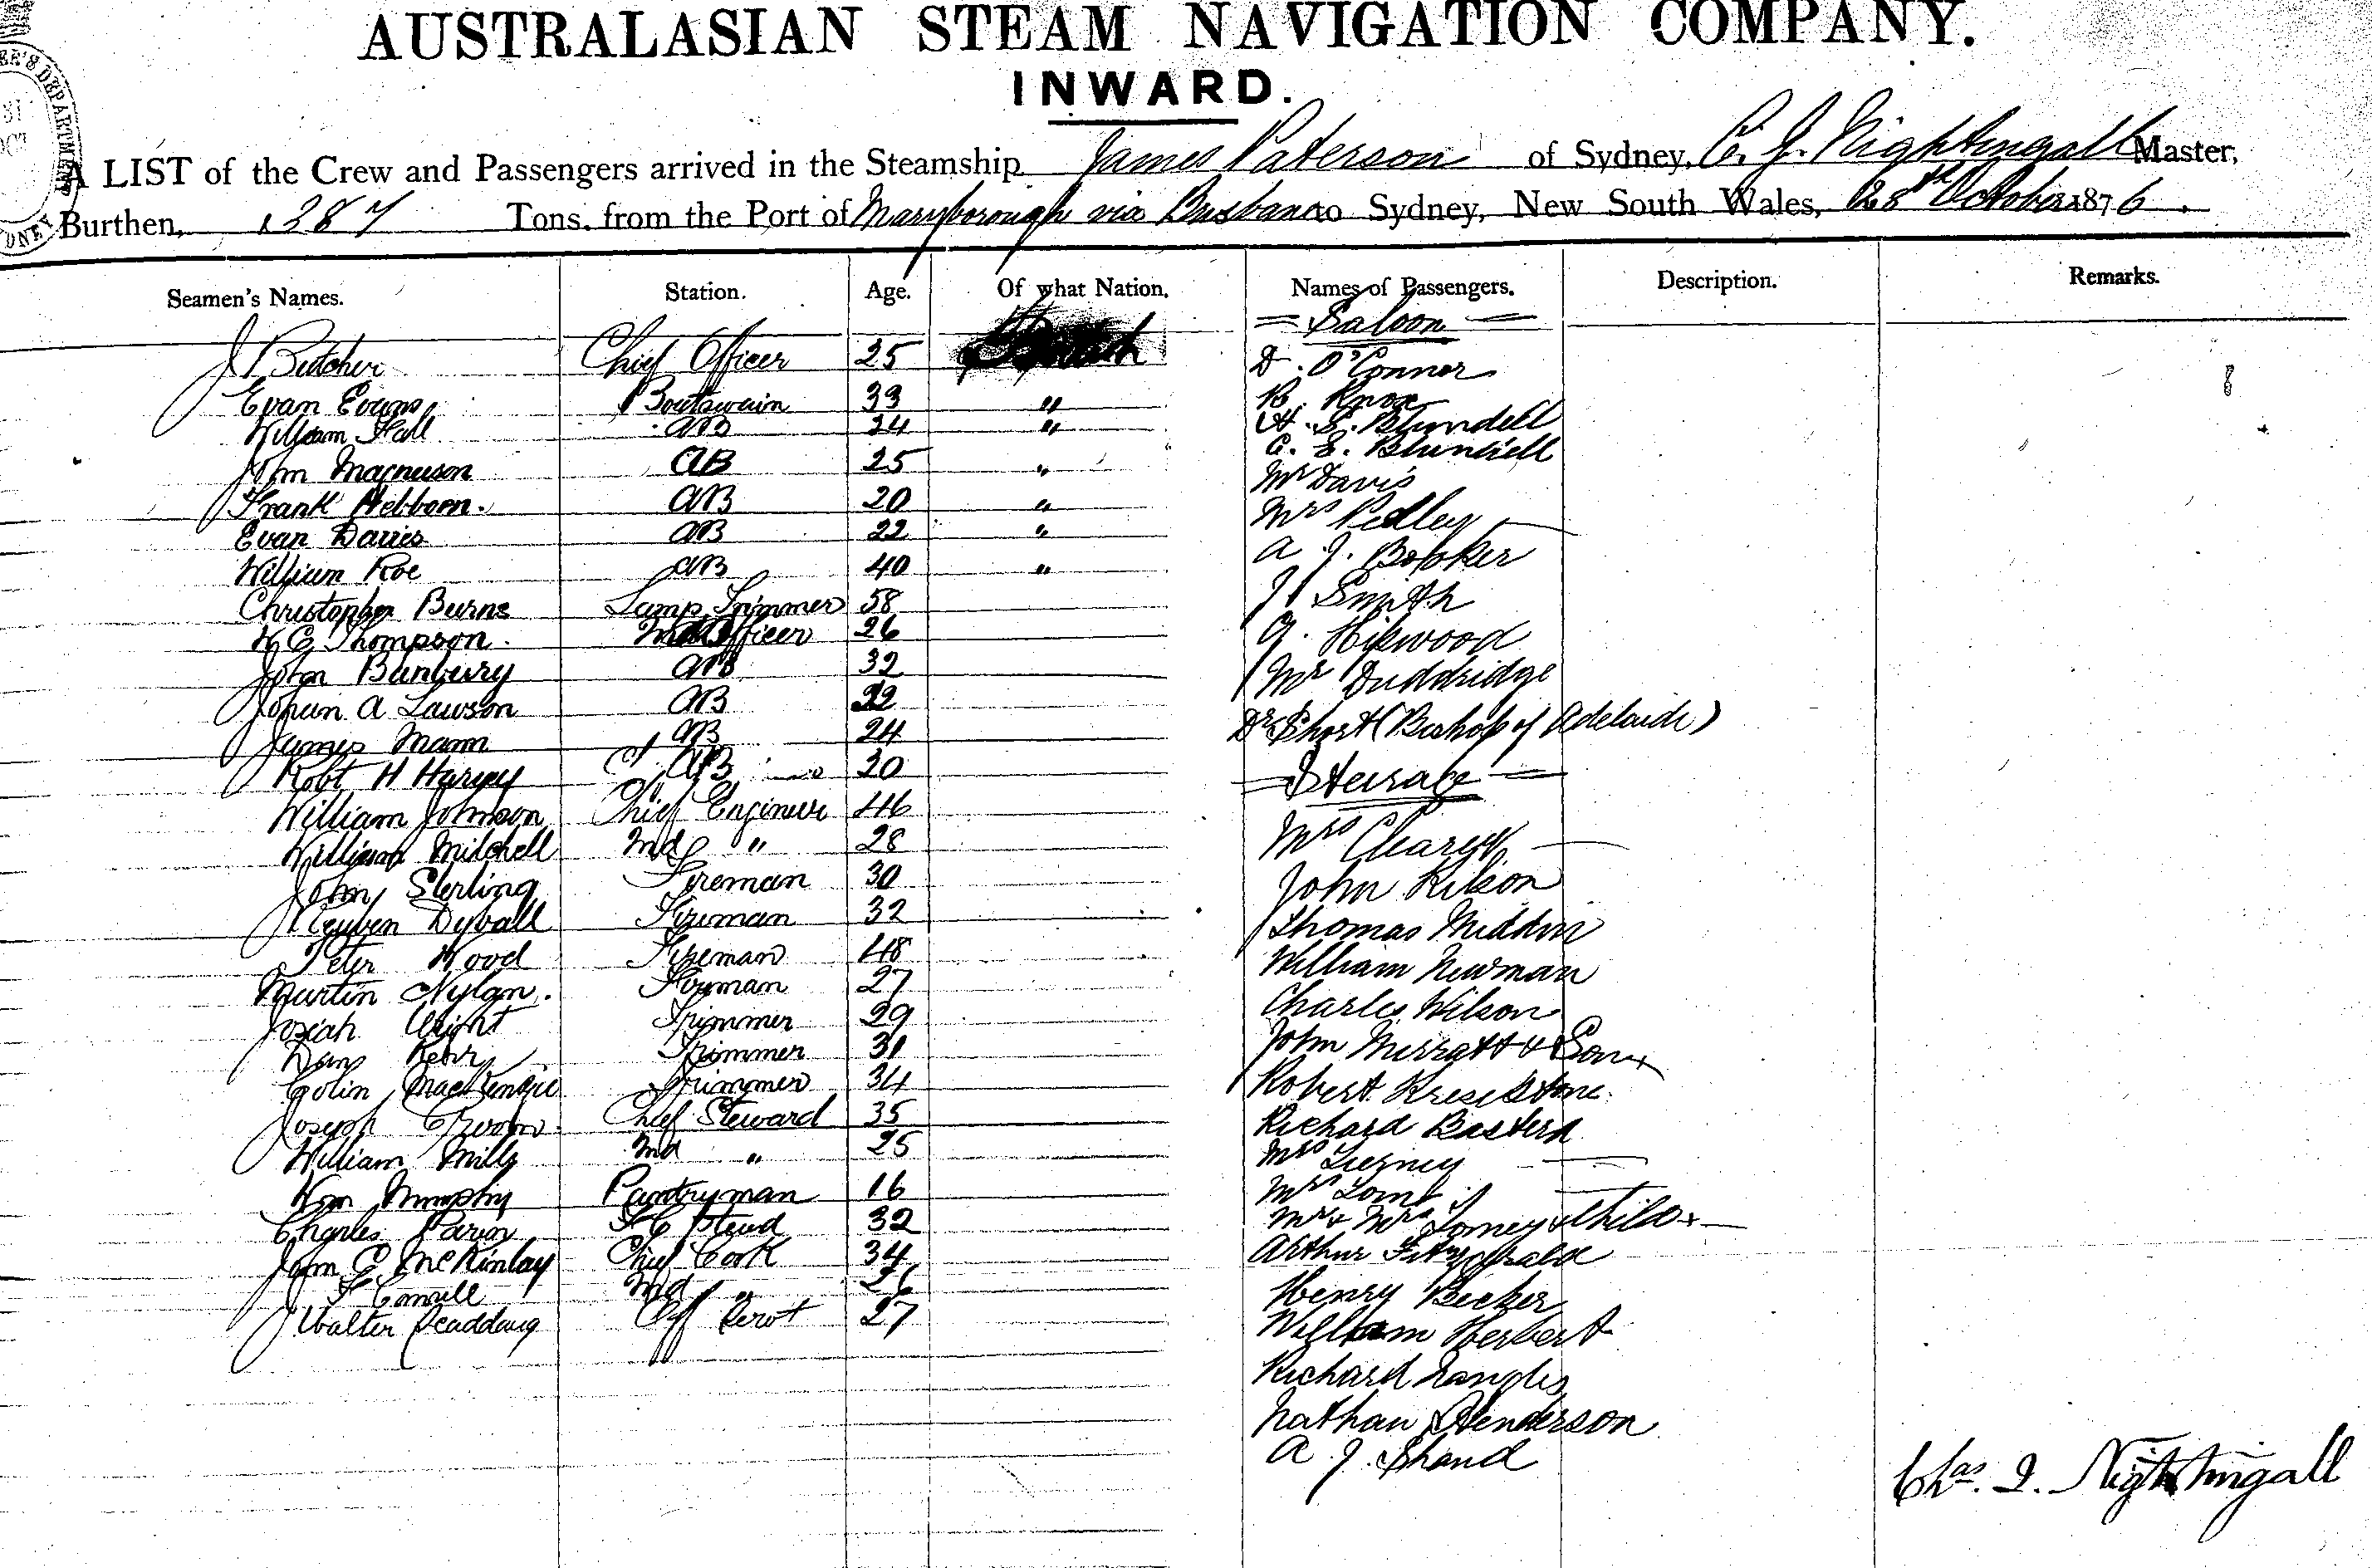 AUSTRALASIAN STEAM NAVIGATION COMPANY.
INWARD.
A LIST of the Crew and Passengers arrived in the Steamship James Paterson of Sydney, C. J. Nightingall Master,
Burthen, 387 Tons, from the Port of Maryborough via Brisbane to Sydney, New South Wales, 28th October 1876.
Seamen's Names. Station. Age. Of what Nation. Names of Passengers. Description. Remarks.
= Saloon =
J Butcher Chief Officer 25 British D. O'Connor
Evan Evans Boatswain 33 " B. Knox
William Hall AB 24 " H. E. Blundell
John Magnuson AB 25 " C. E. Blundell
Mr Davis
Frank Hebborn. AB 20 " Mrs Pedley
Evan Davies AB 22 " A. J. Booker
William Roe AB 40 " J Smith
Christopher Burns Lamp Trimmer 58
W C Thompson. Officer 26 Hikwood
John Banbury AB 32 Mr Duddridge
Johan A Lawson AB 22 Dr Short (Bishop of Adelaide)
James Mann AB 24
Robt H Harvey AB 20 = Steerage =
William Johnson Chief Engineer 46 Mrs Cleary
William Mitchell 2nd " 28
John Sterling Fireman 30 John Kilson
Reuben Dyball Fireman 32 Thomas
Peter Wood Fireman 48 William Newman
Martin Nylan. Foreman 27 Charles Wilson
Josiah Wright Trimmer 29 John & Son
Dans Trimmer 31
Colin MacKenzie Trimmer 34 Robert
Joseph Chief Steward 35 Richard
William Mills 2nd " 25 Mrs Tierney
Wm Murphy Pantryman 16 Mrs
Charles F C Stewd 32 Mr & Mrs Tomey & child
John C McKinlay Chief Cook 34 Arthur Fitzgerald
2nd " 26 Henry Becker
Walter 27 William Herbert
Richard
Nathan Henderson
A. J. Shand
Chas. J. Nightingall